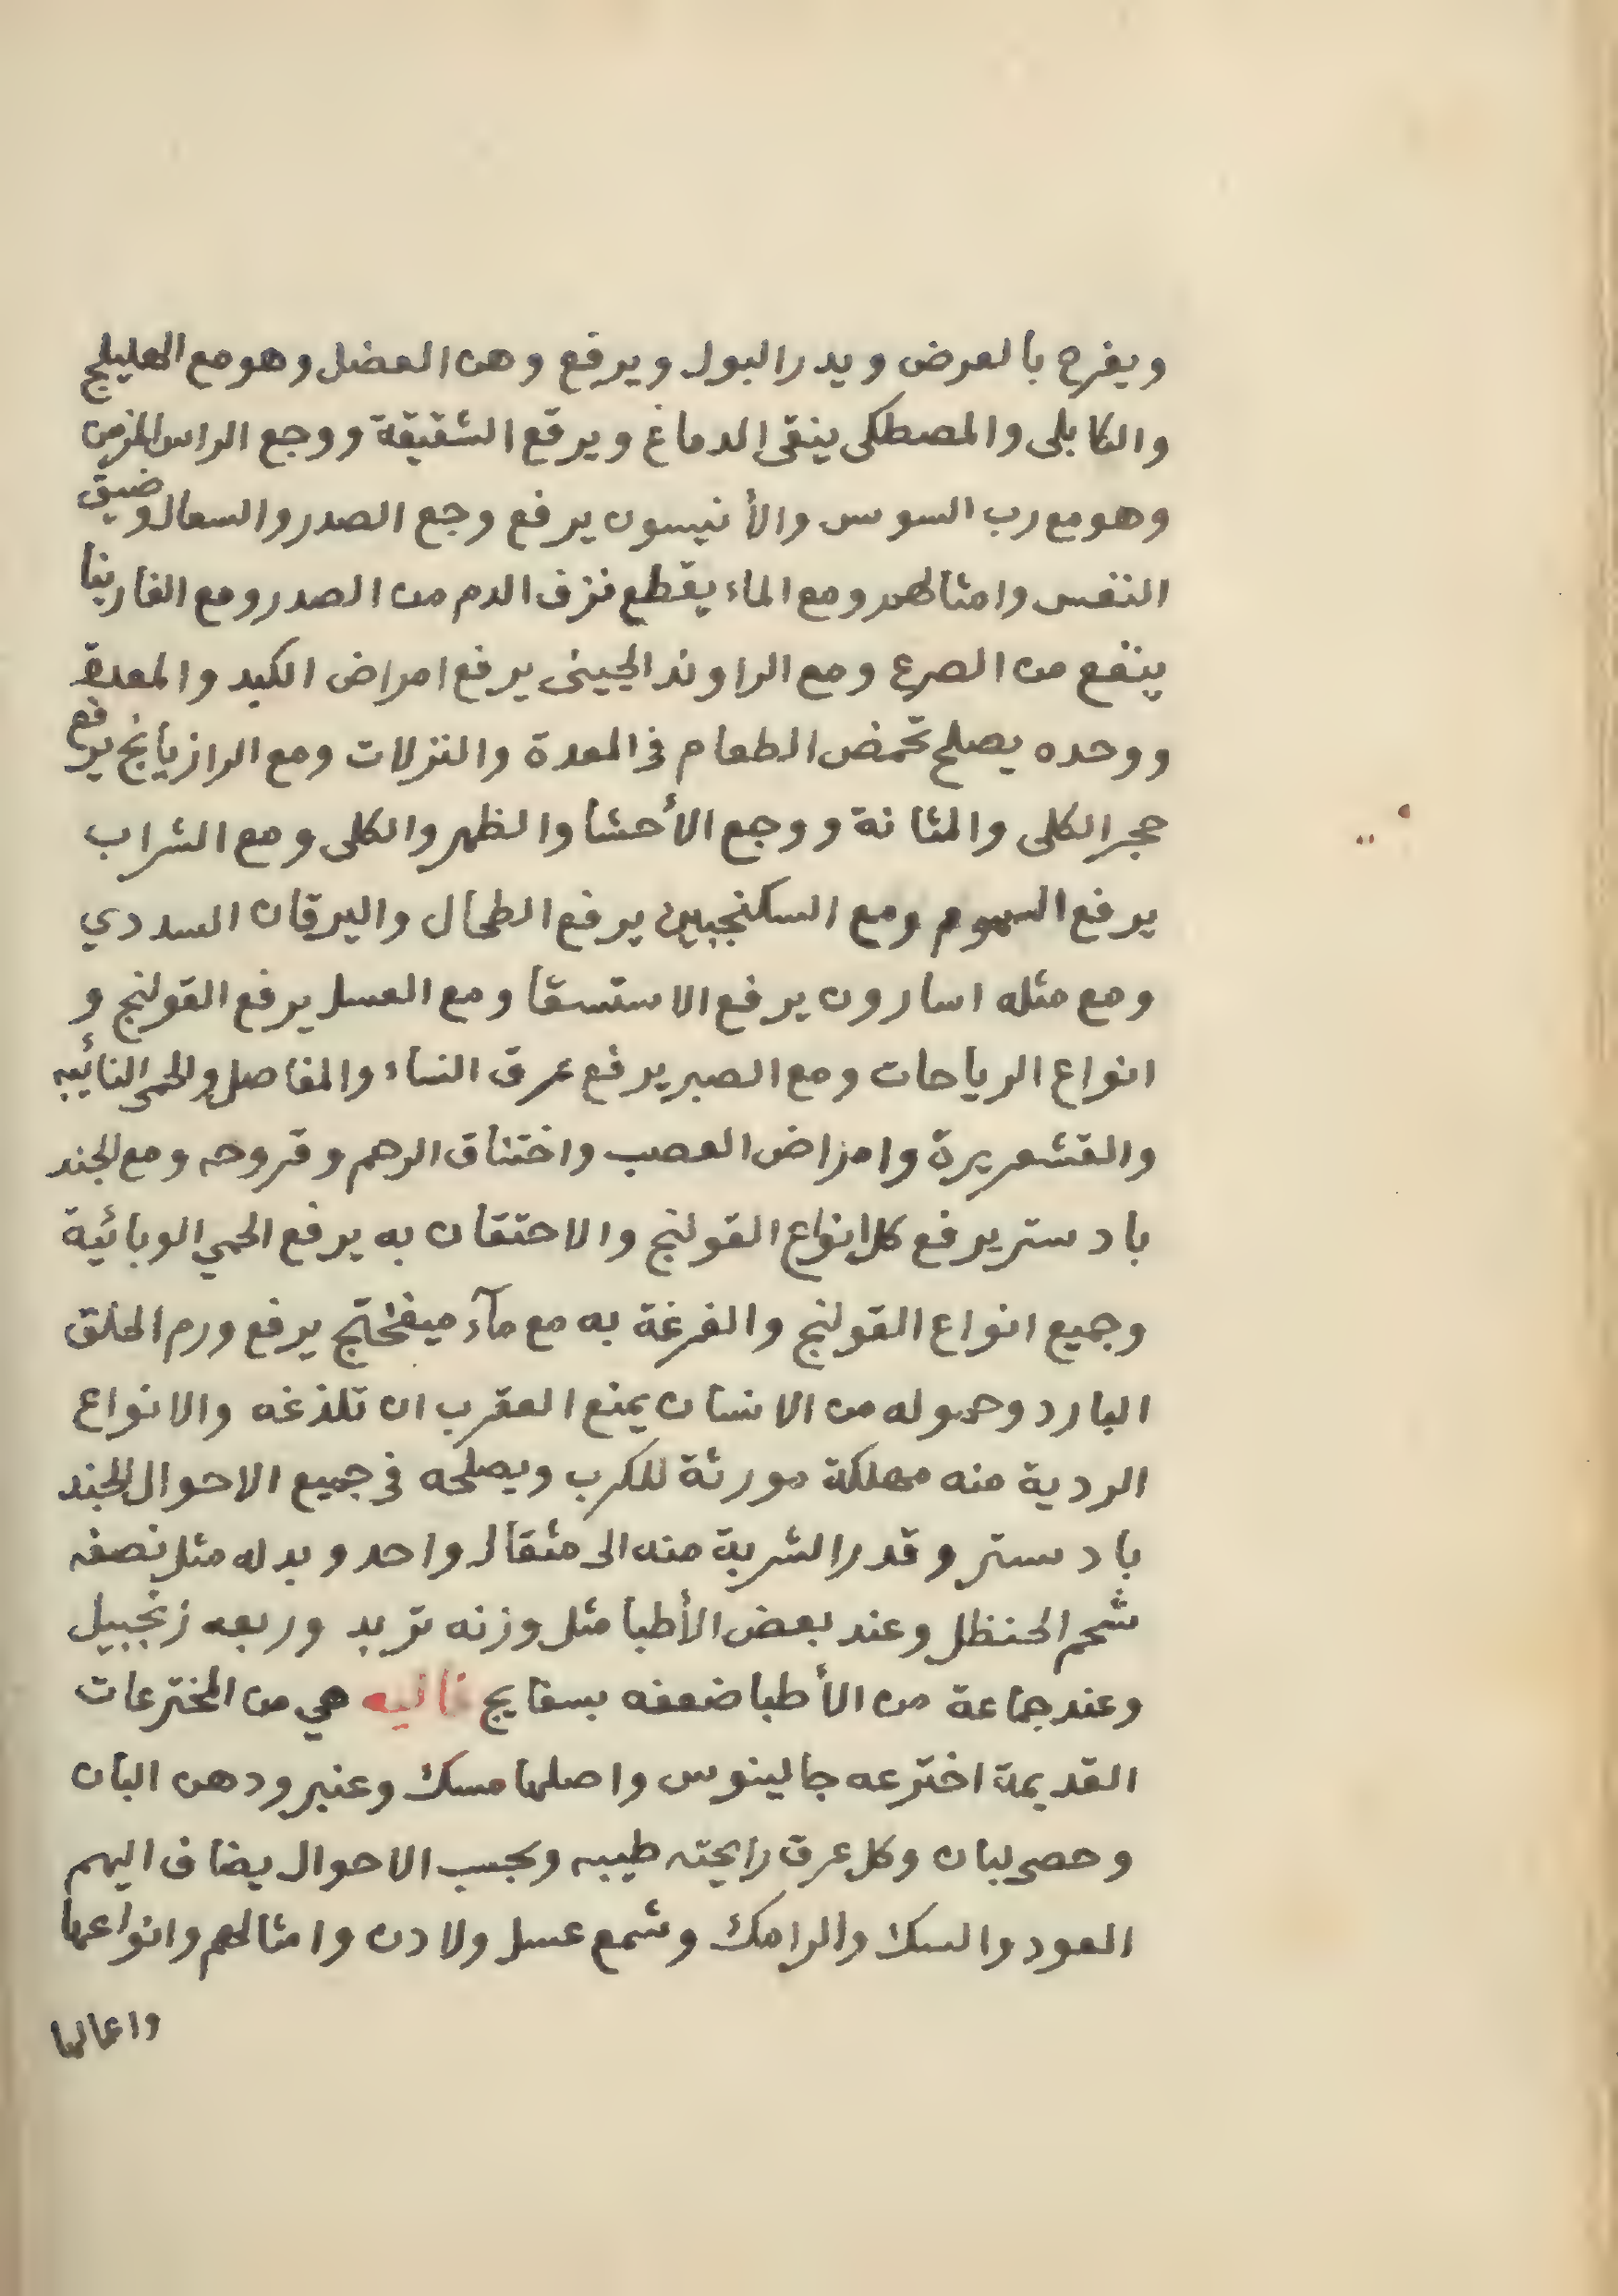 ويفرح بالعرض ويدر البول ويرفع وهن العضل وهو مع الهليلج
والكابلى والمصطكى ينقى الدماغ ويرفع الشقيقة ووجع الراس المزمن
وهو مع رب السوس والأنيسون يرفع وجع الصدر والسعال وضيق
النفس وامثالهم ومع الماء يقطع نزف الدم من الصدر ومع الفارينا
ينفع من الصرع ومع الراوند الجينى يرفع امراض الكبد والمعدة
ووحده يصلح تحمض الطعام فى المعدة والنزلات ومع الرازيانج يرفع
حجر الكلى والمثانة ووجع الأحشا والظهر والكلى ومع الشراب
يرفع السموم ومع السكنجبين يرفع الطحال واليرقان السددي
ومع مثله اسارون يرفع الاستسقا ومع العسل يرفع القولنج و
انواع الرياحات ومع الصبر يرفع عرق النساء والمفاصل والحمى النائبه
والقشعريرة وامراض العصب واختناق الرحم وقروحه ومع الجند
بادستر يرفع كل انواع القولنج والاحتقان به يرفع الحمي الوبائية
وجميع انواع القولنج والغرغة به مع مآء ميفختج يرفع ورم الحلق
البارد وحموله من الانسان يمنع العقرب ان تلذغه والانواع
الردية منه مهلكة مورثة للكرب ويصلحه فى جميع الاحوال الجند
بادستر وقدر الشربة منه الى مثقال واحد وبدله مثل نصفه
شحم الحنظل وعند بعض الأطبا مثل وزنه تربد وربعه زنجبيل
وعند جماعة من الأطبا ضعفه بسفايج غاليه هي من المخترعات
القديمة اخترعه جالينوس واصلها مسك وعنبر ودهن البان
وحصى لبان وكل عرق رايحته طيبه وبحسب الاحوال يضاف اليهم
العود والسك والرامك وشمع عسل ولادن وامثالهم وانواعها
واعمالها